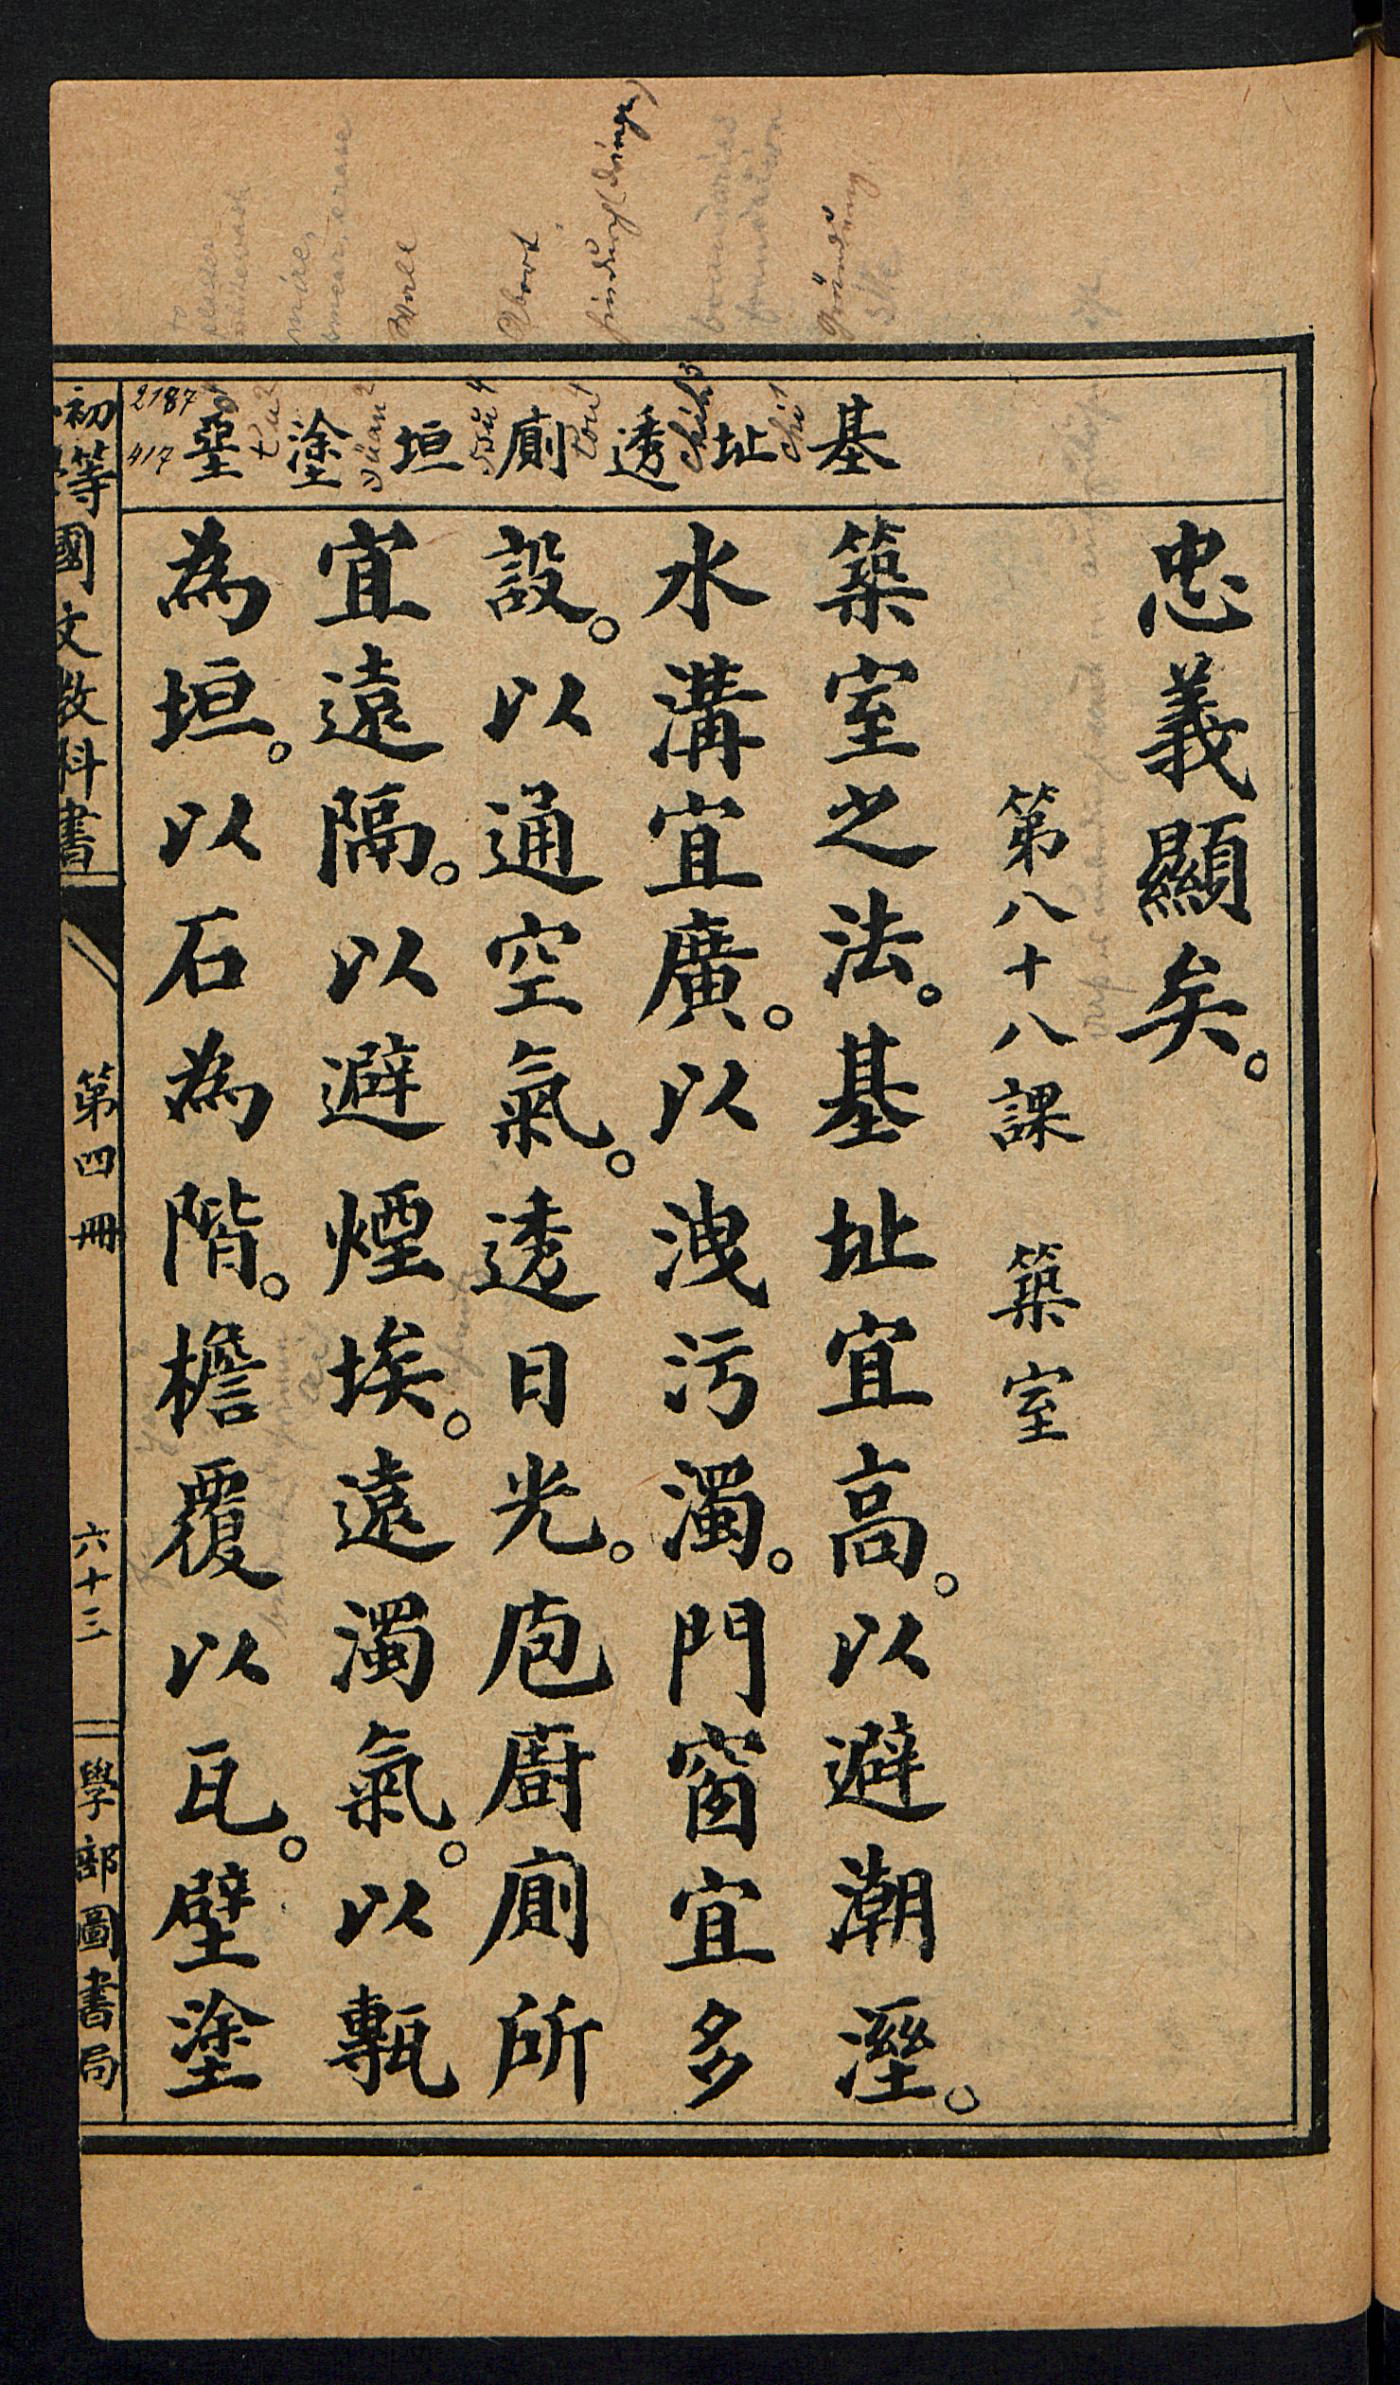 基 址 透 廁 垣 塗 堊
忠義顯矣。
第八十八課 築室
築室之法。基址宜高。以避潮溼。
水溝宜廣。以洩污濁。門窗宜多
設。以通空氣。透日光。庖廚廁所
宜遠隔。以避煙埃。遠濁氣。以甎
為垣。以石為階。檐覆以瓦。壁塗
初等國文教科書
第四冊
六十三
學部圖書局
2187
417
to
plaster
whitewash
mire,
smear, erase
Wall
Abort
boundaries
foundation
Gründung
site
tu2
yüan2
tou4
chih3
chi1